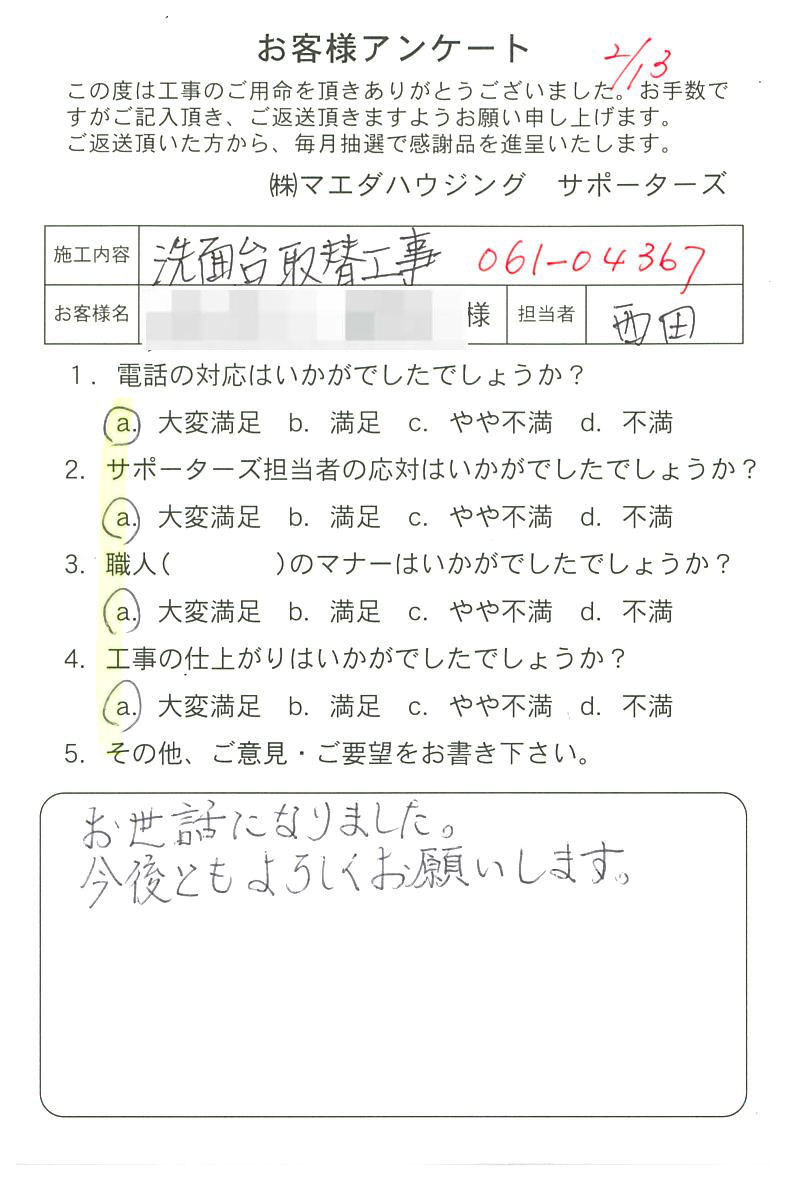 お客様アンケート
2/13
この度は工事のご用命を頂きありがとうございました。お手数で
すがご記入頂き、ご返送頂きますようお願い申し上げます。
ご返送頂いた方から、毎月抽選で感謝品を進呈いたします。
㈱マエダハウジング サポーターズ
施工内容 洗面台取替工事 061-04367
お客様名 様 担当者 西田
1. 電話の対応はいかがでしたでしょうか？
a. 大変満足 b. 満足 c. やや不満 d. 不満
2. サポーターズ担当者の応対はいかがでしたでしょうか？
a. 大変満足 b. 満足 c. やや不満 d. 不満
3. 職人( )のマナーはいかがでしたでしょうか？
a. 大変満足 b. 満足 c. やや不満 d. 不満
4. 工事の仕上がりはいかがでしたでしょうか？
a. 大変満足 b. 満足 c. やや不満 d. 不満
5. その他、ご意見・ご要望をお書き下さい。
お世話になりました。
今後ともよろしくお願いします。